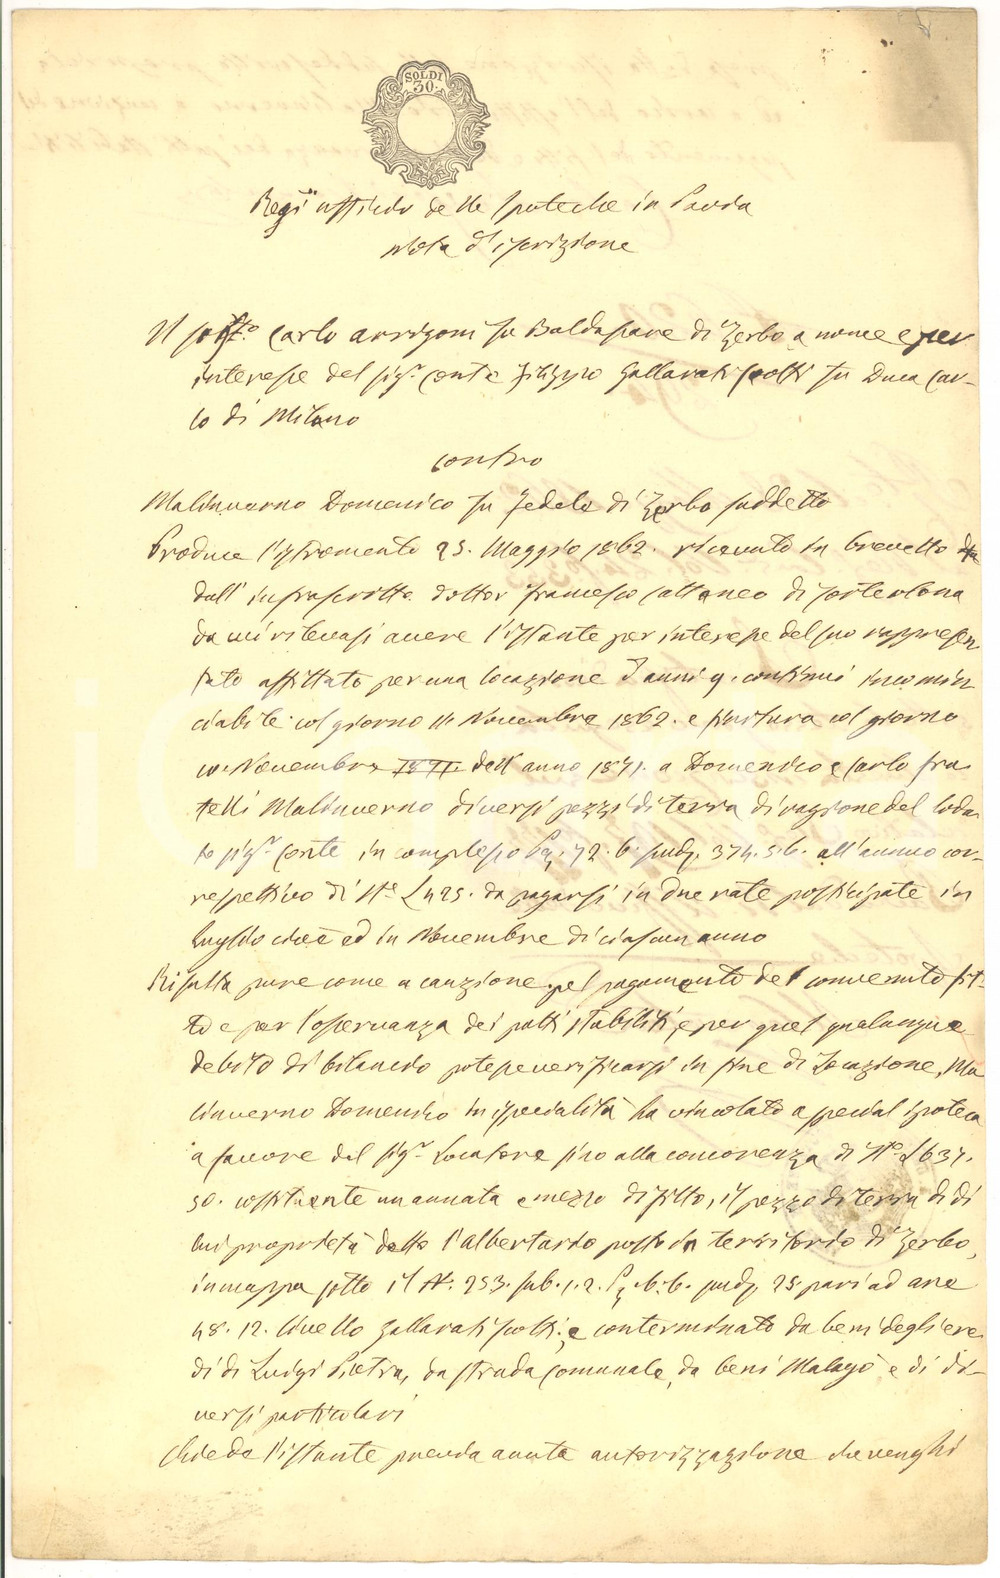 SOLDI
30.
Regio ufficio delle Ipoteche in Pavia
Nota d'iscrizione
Il sott.to Carlo Arrigoni fu Baldassare di Zerbo a nome e per
interesse del sig.r Conte Filippo Gallarati Scotti fu Duca Car-
lo di Milano
contro
Malinverno Domenico fu Fedele di Zerbo suddetto
Produce l'istromento 25. Maggio 1862. ricevuto in brevetto
dall' infrascritto dottor Francesco Cattaneo di Corteolona
da cui ritenasi avere l'istante per interesse del suo rappresen
tato affittato per una locazione d'anni 9. continui incomin
ciabile col giorno 11 Novembre 1862. e finitura col giorno
10. Novembre 1871. dell'anno 1871. a Domenico e Carlo fra-
telli Malinverno diversi pezzi di terra di ragione del loda
to sig.r Conte in complesso P. 72. 6. Scudi 374. 5. 6. all'annuo cor-
respettivo di It.e L 425. da pagarsi in due rate posticipate in
Luglio cioè ed in Novembre di ciascun anno
Risulta pure come a cauzione pel pagamento del convenuto fit-
to e per l'osservanza dei patti stabiliti, e per quel qualunque
debito di bilancio potesse verificarsi in fine di Locazione, Ma
linverno Domenico in specialità ha vincolato a special ipoteca
a favore del sig.r Locatore sino alla concorrenza di It.e L 637.
50. costituente un annata e mezzo di fitto, il pezzo di terra di di
lui proprietà detto l'albertario posto in territorio di Zerbo,
in mappa sotto il N. 253. sub. 1. 2. P. 6. 6. scudi 25 pari ad are
48. 12. livello Gallarati Scotti; e conterminato da beni degli ere
di di Luigi Pietra, da strada Comunale, da beni Malagò e di di-
versi particolari
Chiede l'istante previa avuta autorizzazione che venghi